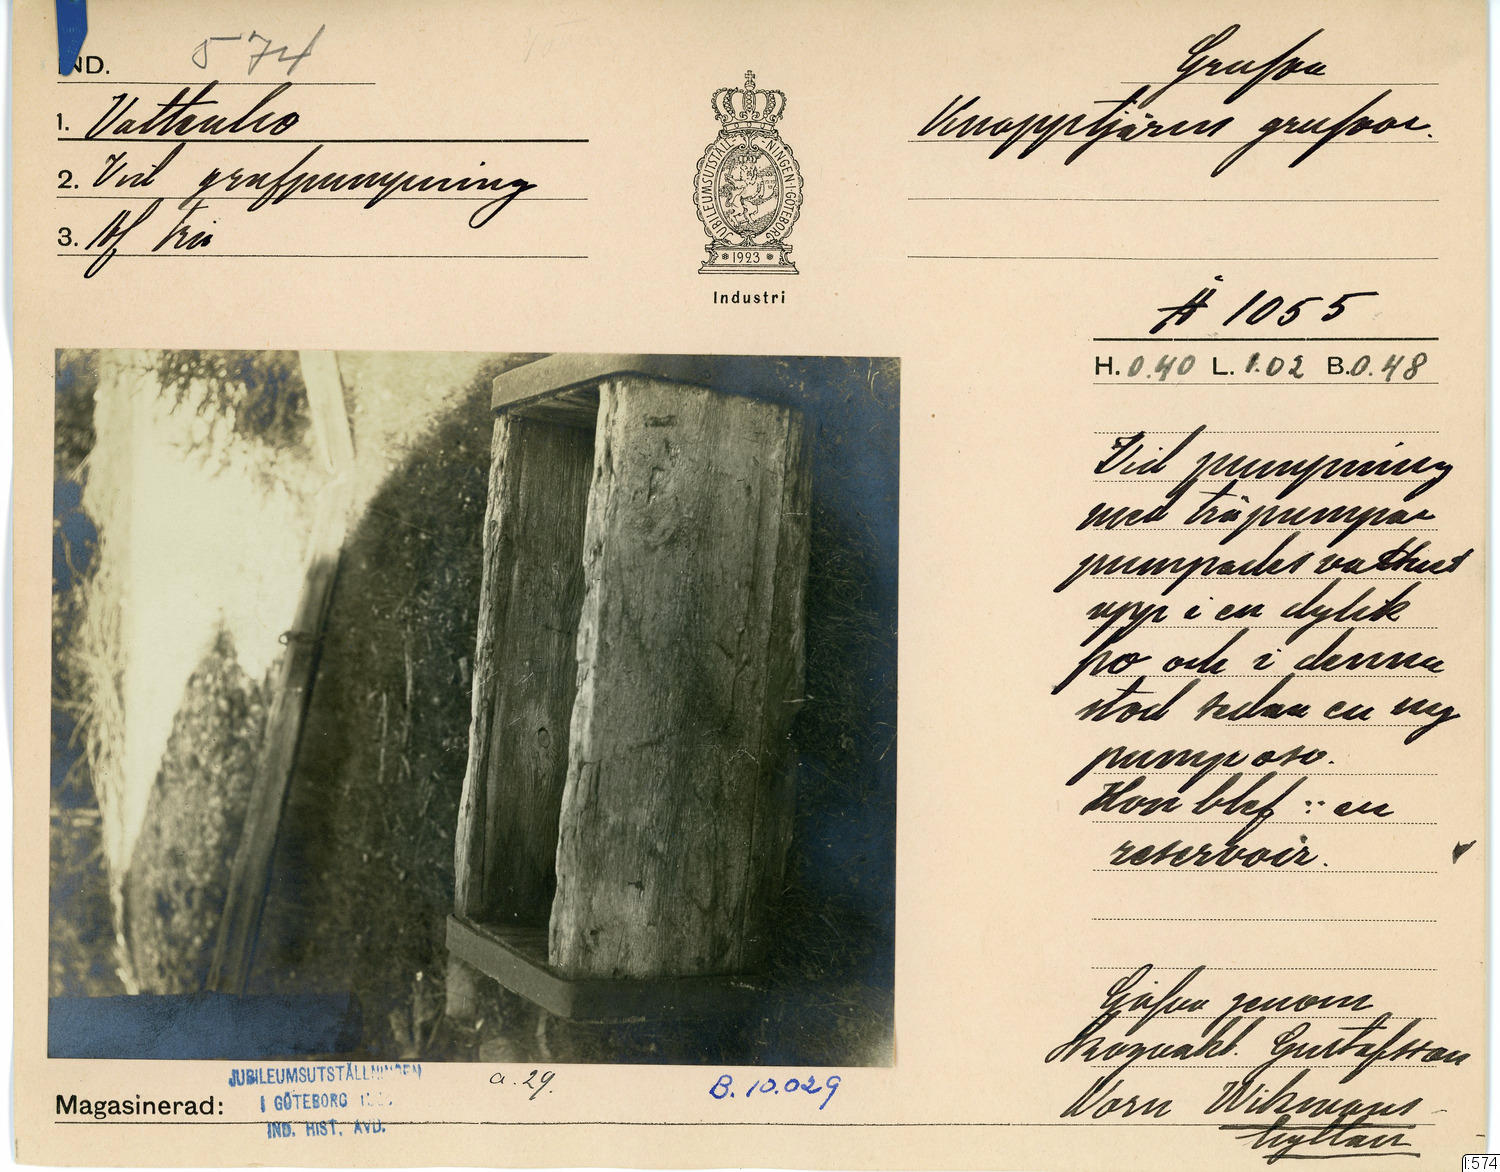 IND. 574
1. Vattenho
2. Vid grufpumpning
3. Af trä
JUBILEUMSUTSTÄLLNINGEN I GÖTEBORG
1923
Industri
Grufva
Knapptjärns grufvor.
Å 1055
H. 0.40 L. 1.02 B. 0.48
Vid pumpning
med träpumpar
pumpades vattnet
upp i en dylik
ho och i denna
stod sedan en ny
pump osv.
Hon blef :: en
reservoir.
Gåfva genom
Skogvakt. Gustafsson
Norn Wikmans-
hyttan
Magasinerad:
JUBILEUMSUTSTÄLLNINGEN
I GÖTEBORG
IND. HIST. AVD.
a. 29.
B. 10.029
I:574